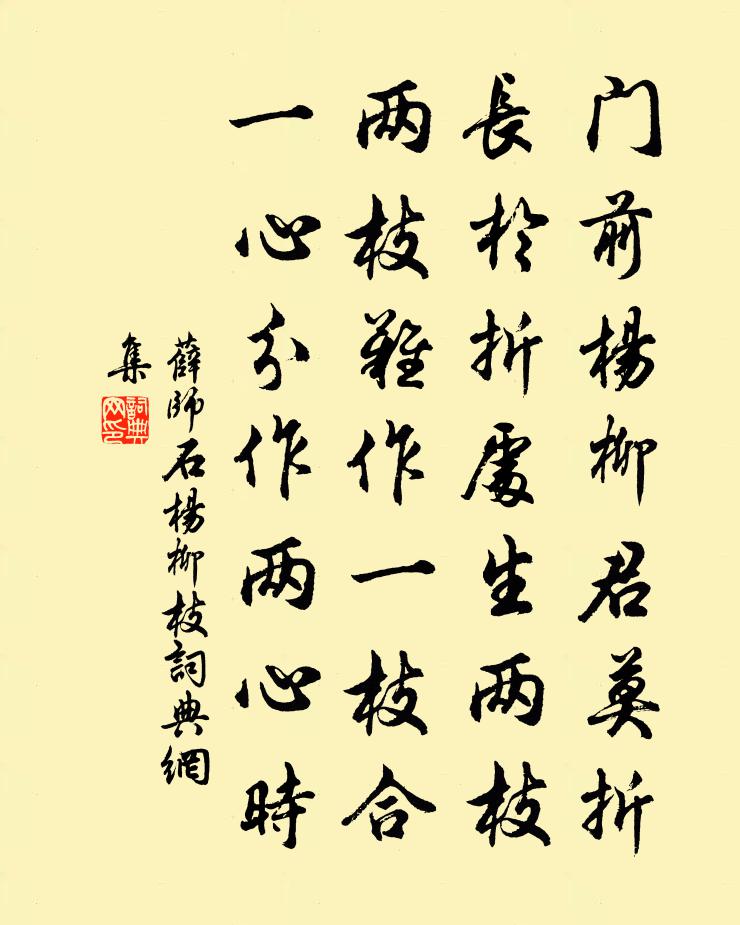 门前楊柳君莫折
長於折處生两枝
两枝難作一枝合
一心分作两心時
薛師石楊柳枝詞典網
集
詞典
网印